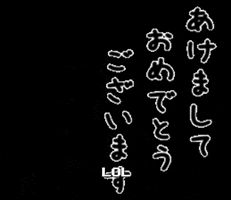 あけまして
おめでとう
ございます
LOL